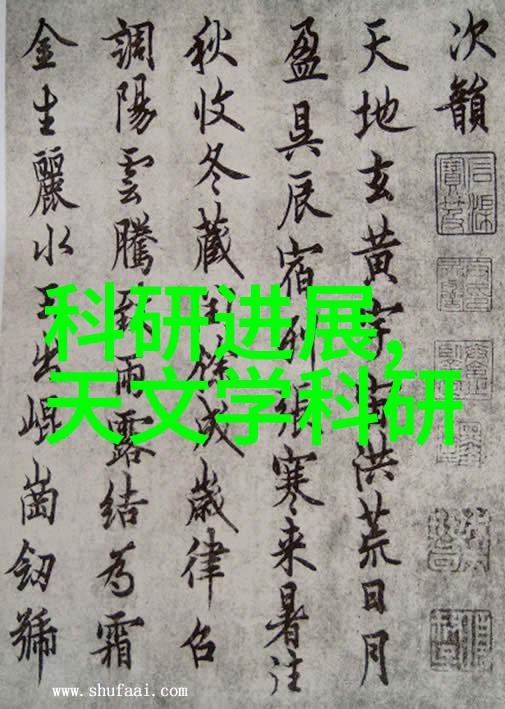 次韻
天地玄黃宇宙洪荒日月
盈昃辰宿列張寒来暑往
秋收冬藏閏餘成歲律召
調陽雲騰致雨露結為霜
金生麗水玉出崐崗劒號
科研进展,
天文学科研
www.shufaai.com